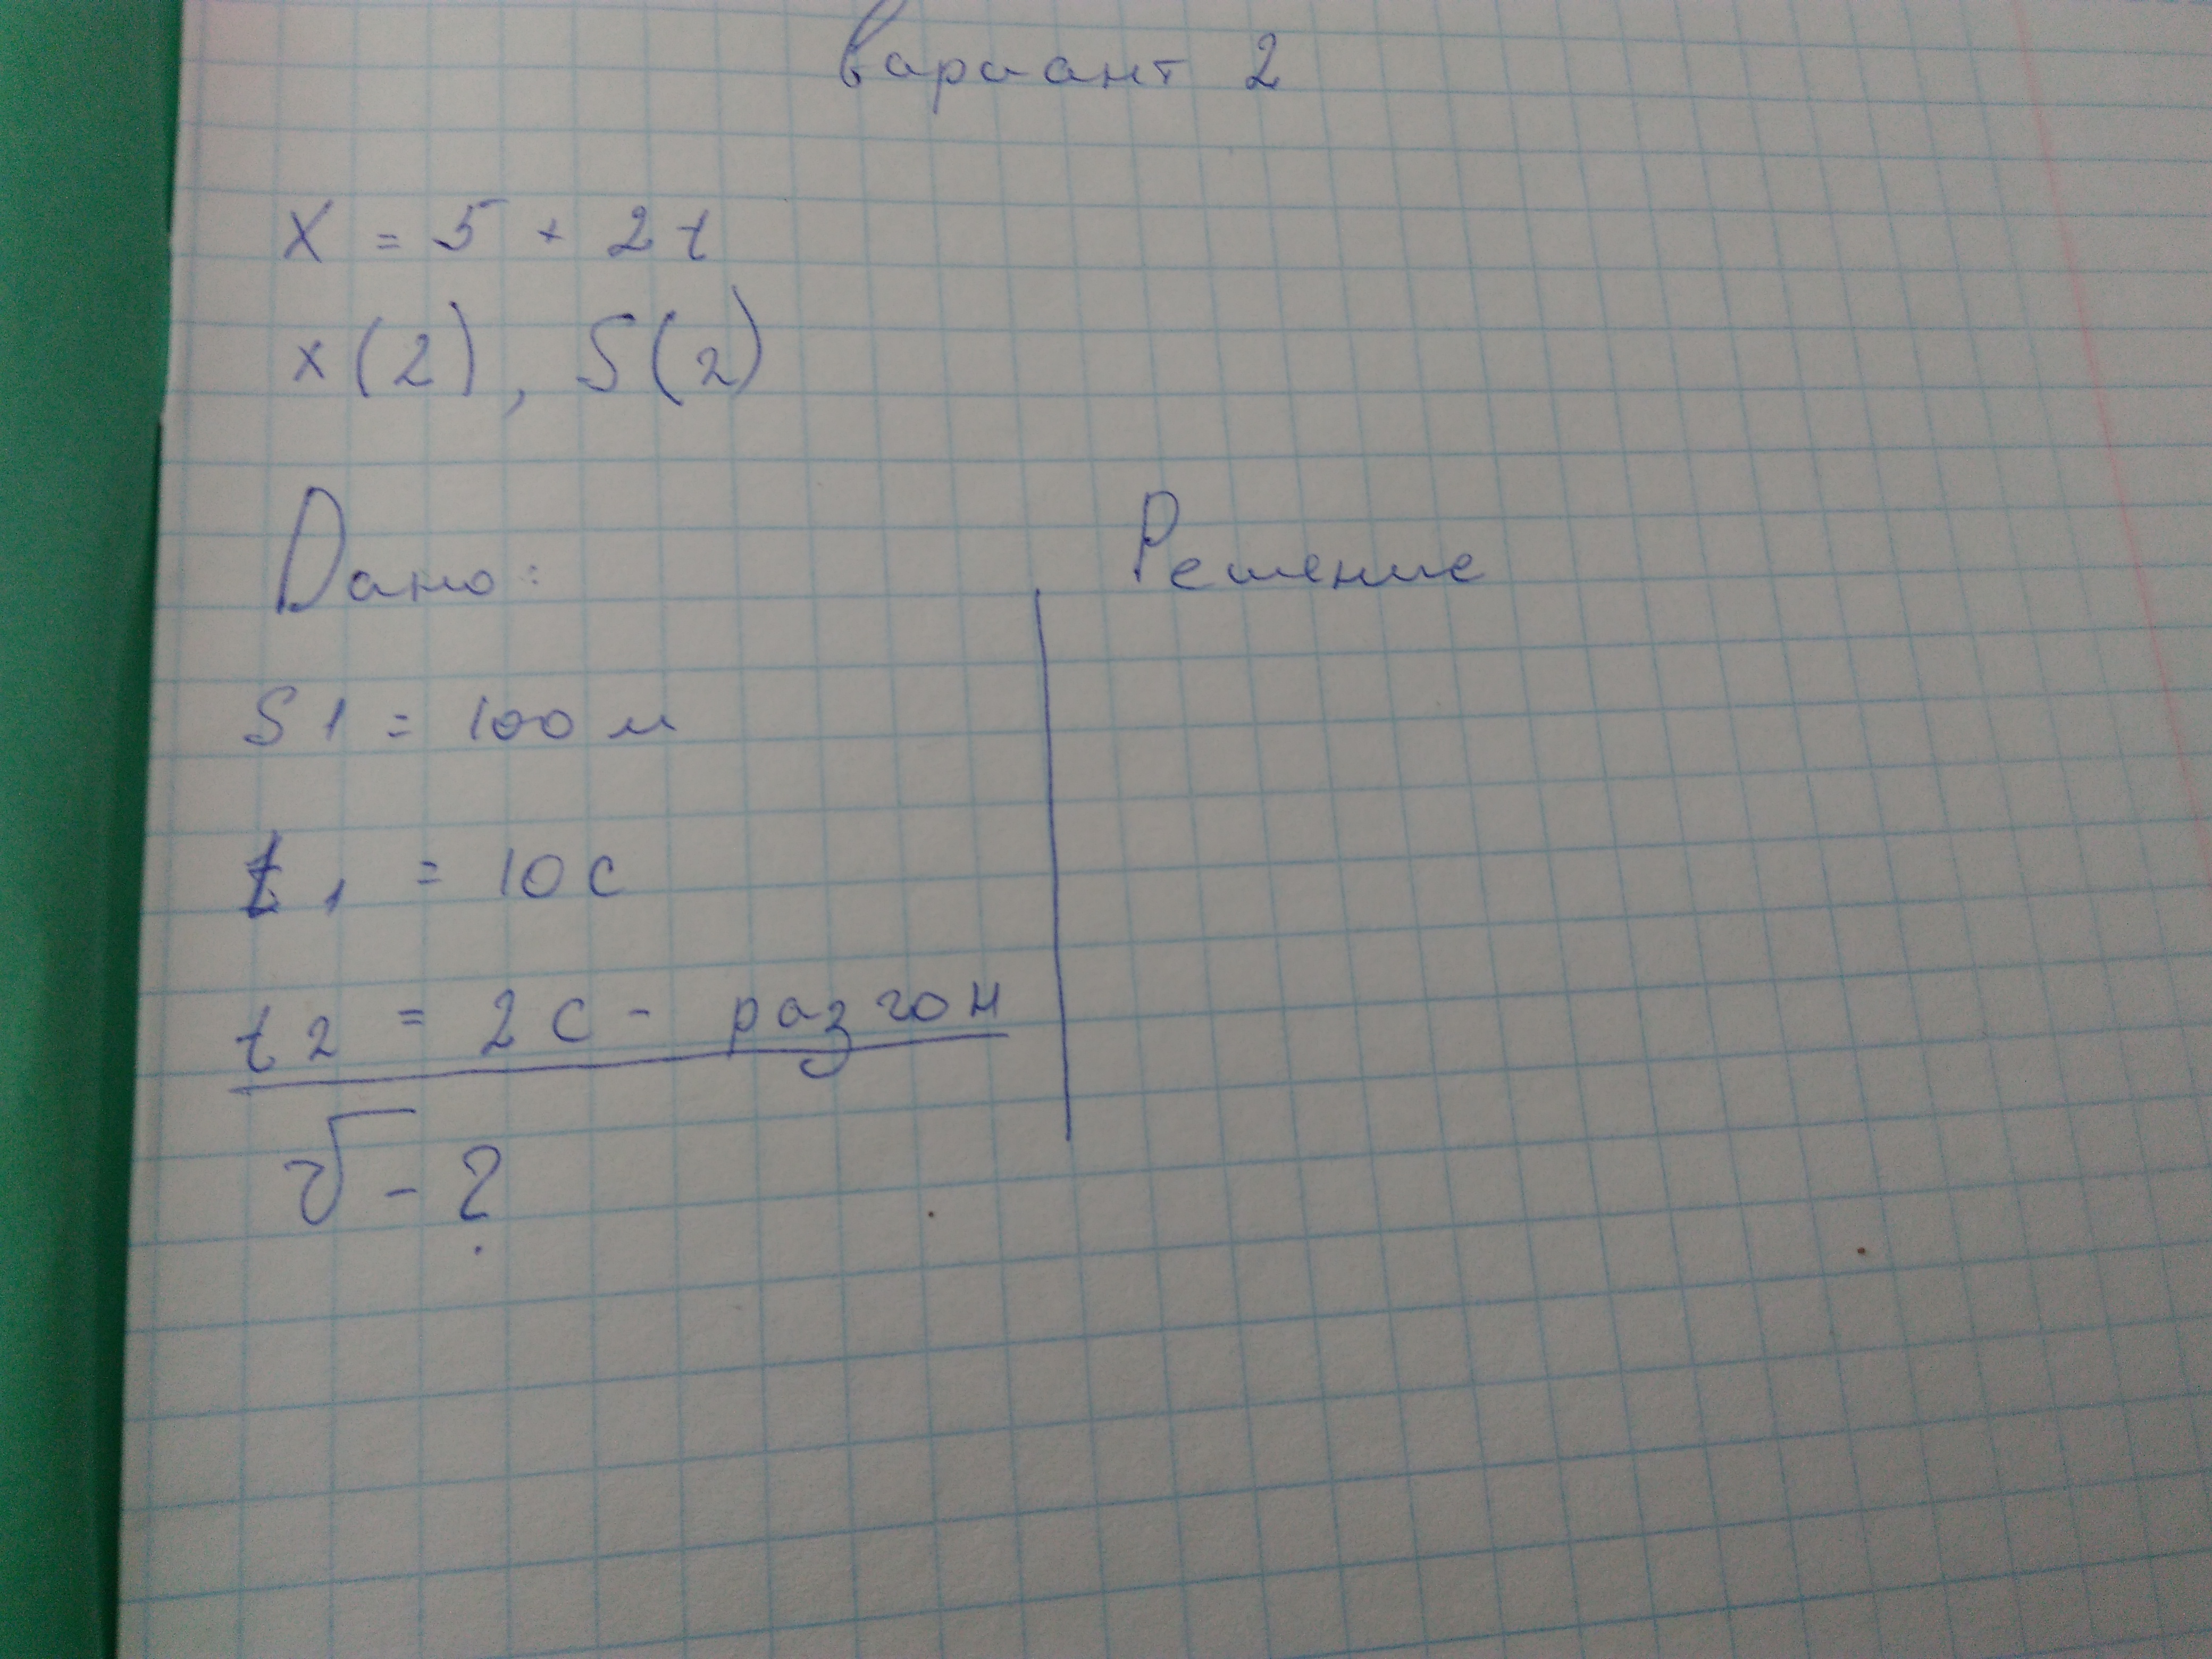 Вариант 2
x = 5 + 2t
x(2), S(2)
Дано: Решение
S1 = 100 м
t1 = 10 с
t2 = 2 с - разгон
v - ?